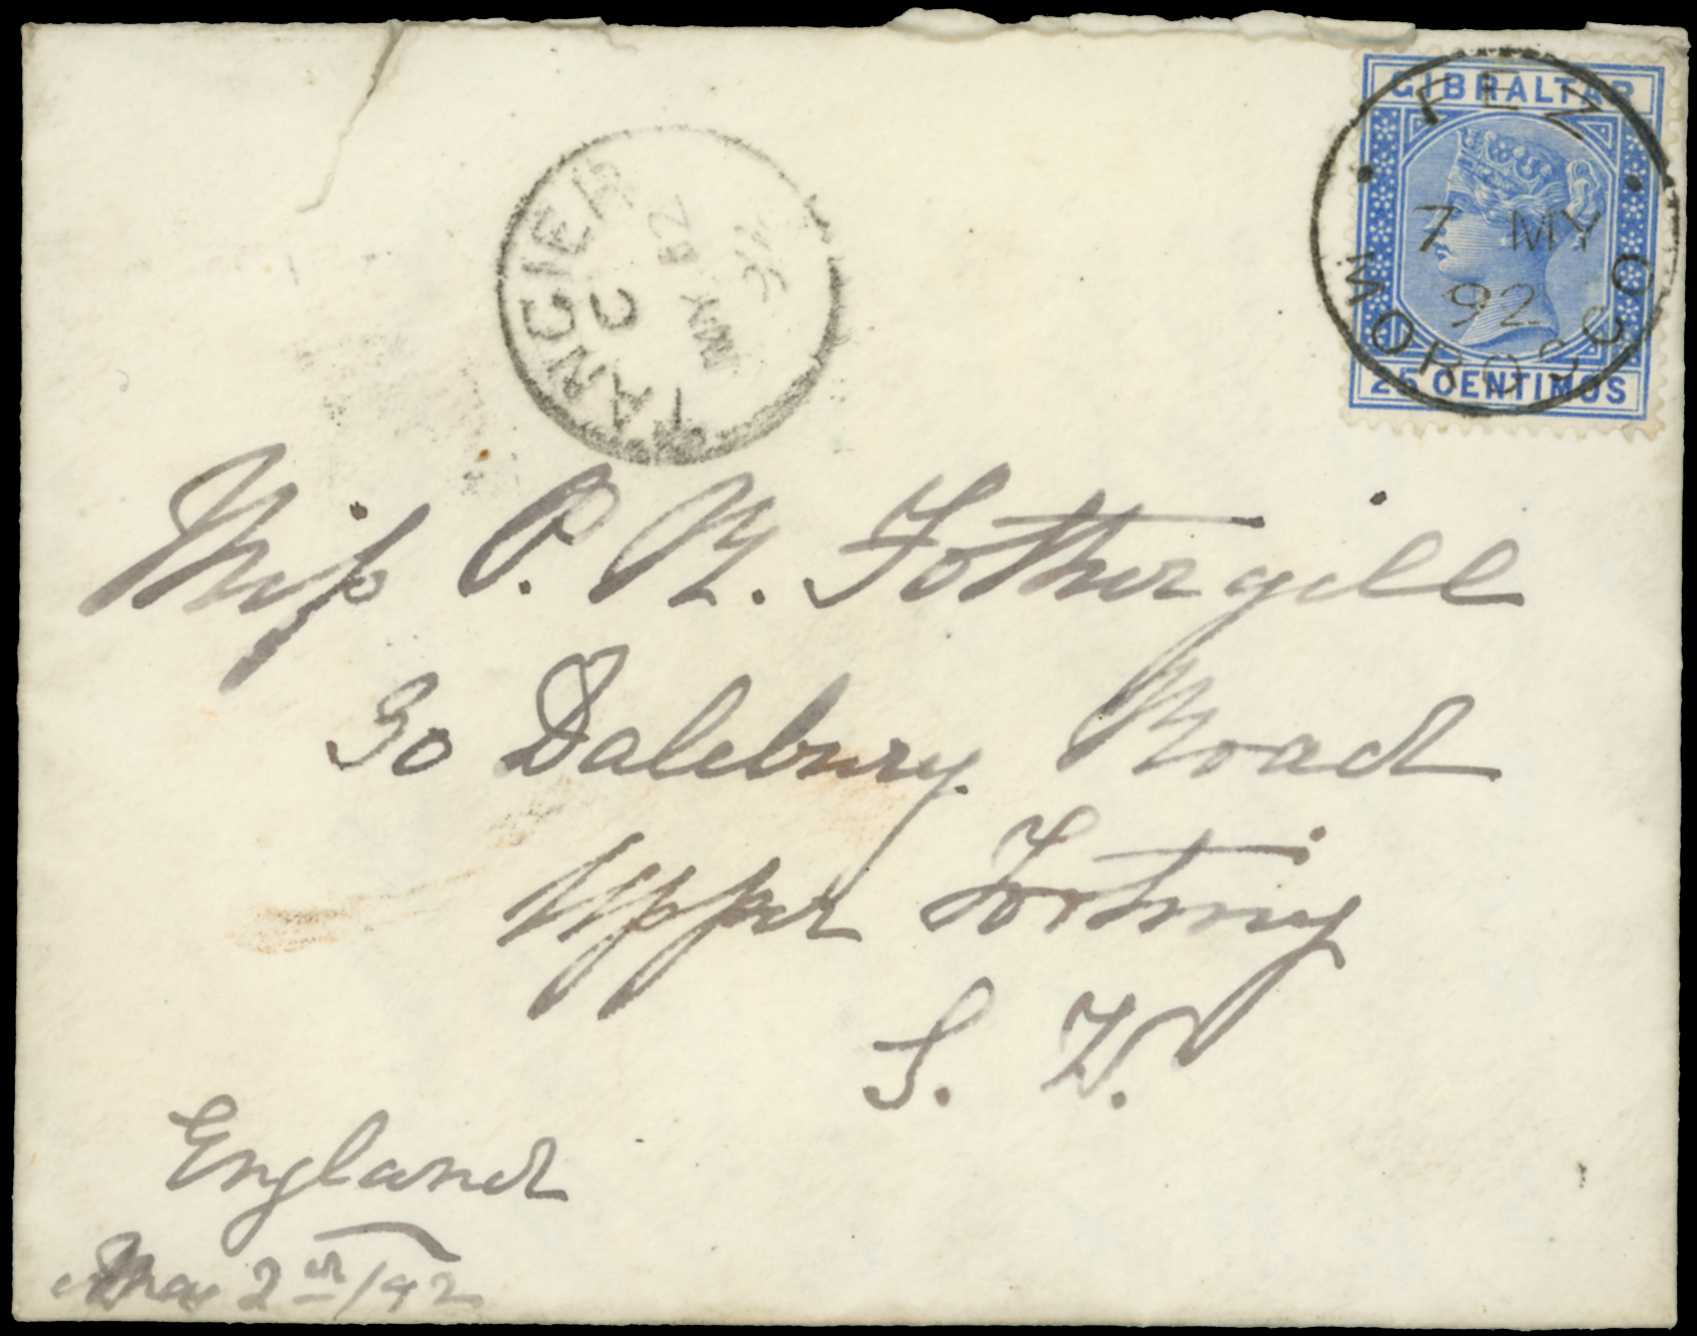 GIBRALTAR
25 CENTIMOS
FEZ
7 MY
92
MOROCCO
TANGIER
C
MY
92
Miss P. M. Fothergill
30 Dalebury Road
Upper Tooting
S. W.
England
May 2nd/92